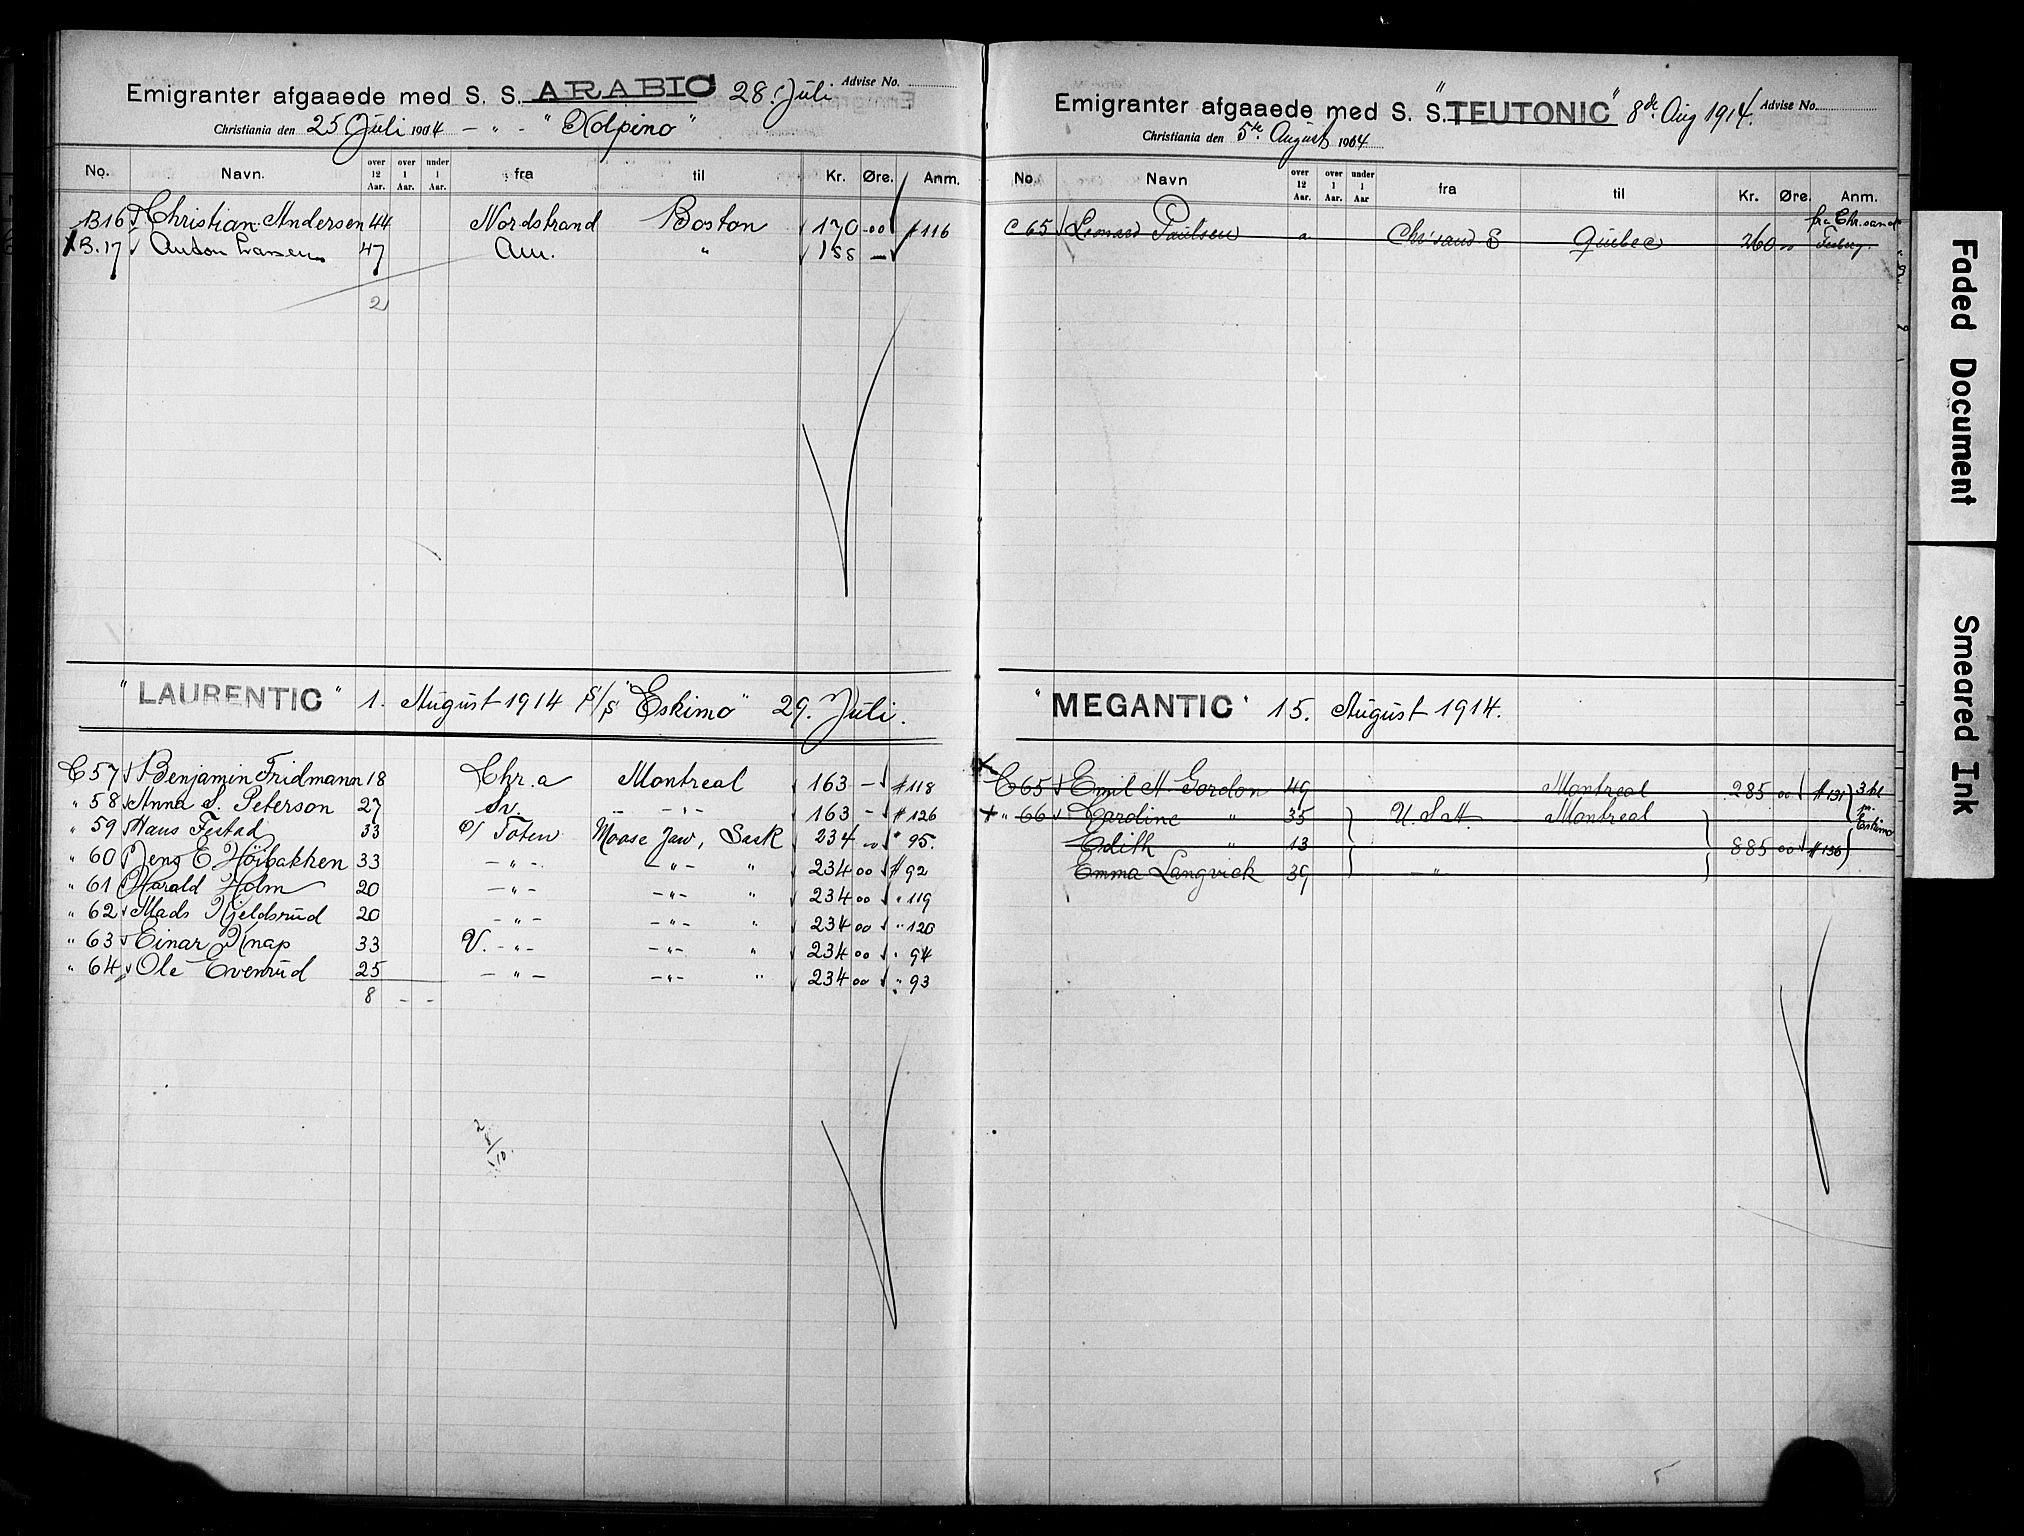 Emigranter afgaaede med S. S. ARABIC 28. Juli Advise No.
Christiania den 25 Juli 1914 — " - "Kolpino"
No. Navn. over 12 Aar. over 1 Aar. under 1 Aar. fra til Kr. Øre. Anm.
B 16 Christian Andersen 44 Nordstrand Boston 170 00 # 116
B. 17 Anton Larsen 47 Am. " 188 —
2
"LAURENTIC" 1. August 1914 S/S "Eskimo" 29. Juli.
C 57 Benjamin Fridmann 18 Chr.a Montreal 163 — # 118
" 58 Anna S. Peterson 27 Sv. — " — 163 — # 126
" 59 Hans Fystad 33 Ø/ Toten Moose Jaw, Sask 234 00 " 95.
" 60 Jens E Höibakken 33 — " — — " — " 234 00 # 92
" 61 Harald Holm 20 — " — — " — " 234 00 " 119
" 62 Mads Kjeldsrud 20 — " — — " — " 234 00 " 120
" 63 Einar Knap 33 V. — " — — " — " 234 00 " 94
" 64 Ole Evenrud 25 — " — — " — " 234 00 " 93
8 - -
2
8
10.
Emigranter afgaaede med S. S. "TEUTONIC" 8de Aug 1914. Advise No.
Christiania den 5te August 1914
No. Navn over 12 Aar. over 1 Aar. under 1 Aar fra til Kr. Øre. Anm.
fra Chr.sand
C 65 Leonard Paulsen a Chr'sand S Quebec 260 00
"MEGANTIC" 15. August 1914.
C 65 Emil A. Gordon 49 Montreal 285 00 # 131 3 kl
" 66 Karoline " 35 U.S.A. Montreal m. Eskimo
Edith " 13 885 00 # 136
Emma Langvick 39 — " —
5
Faded Document
Smeared Ink